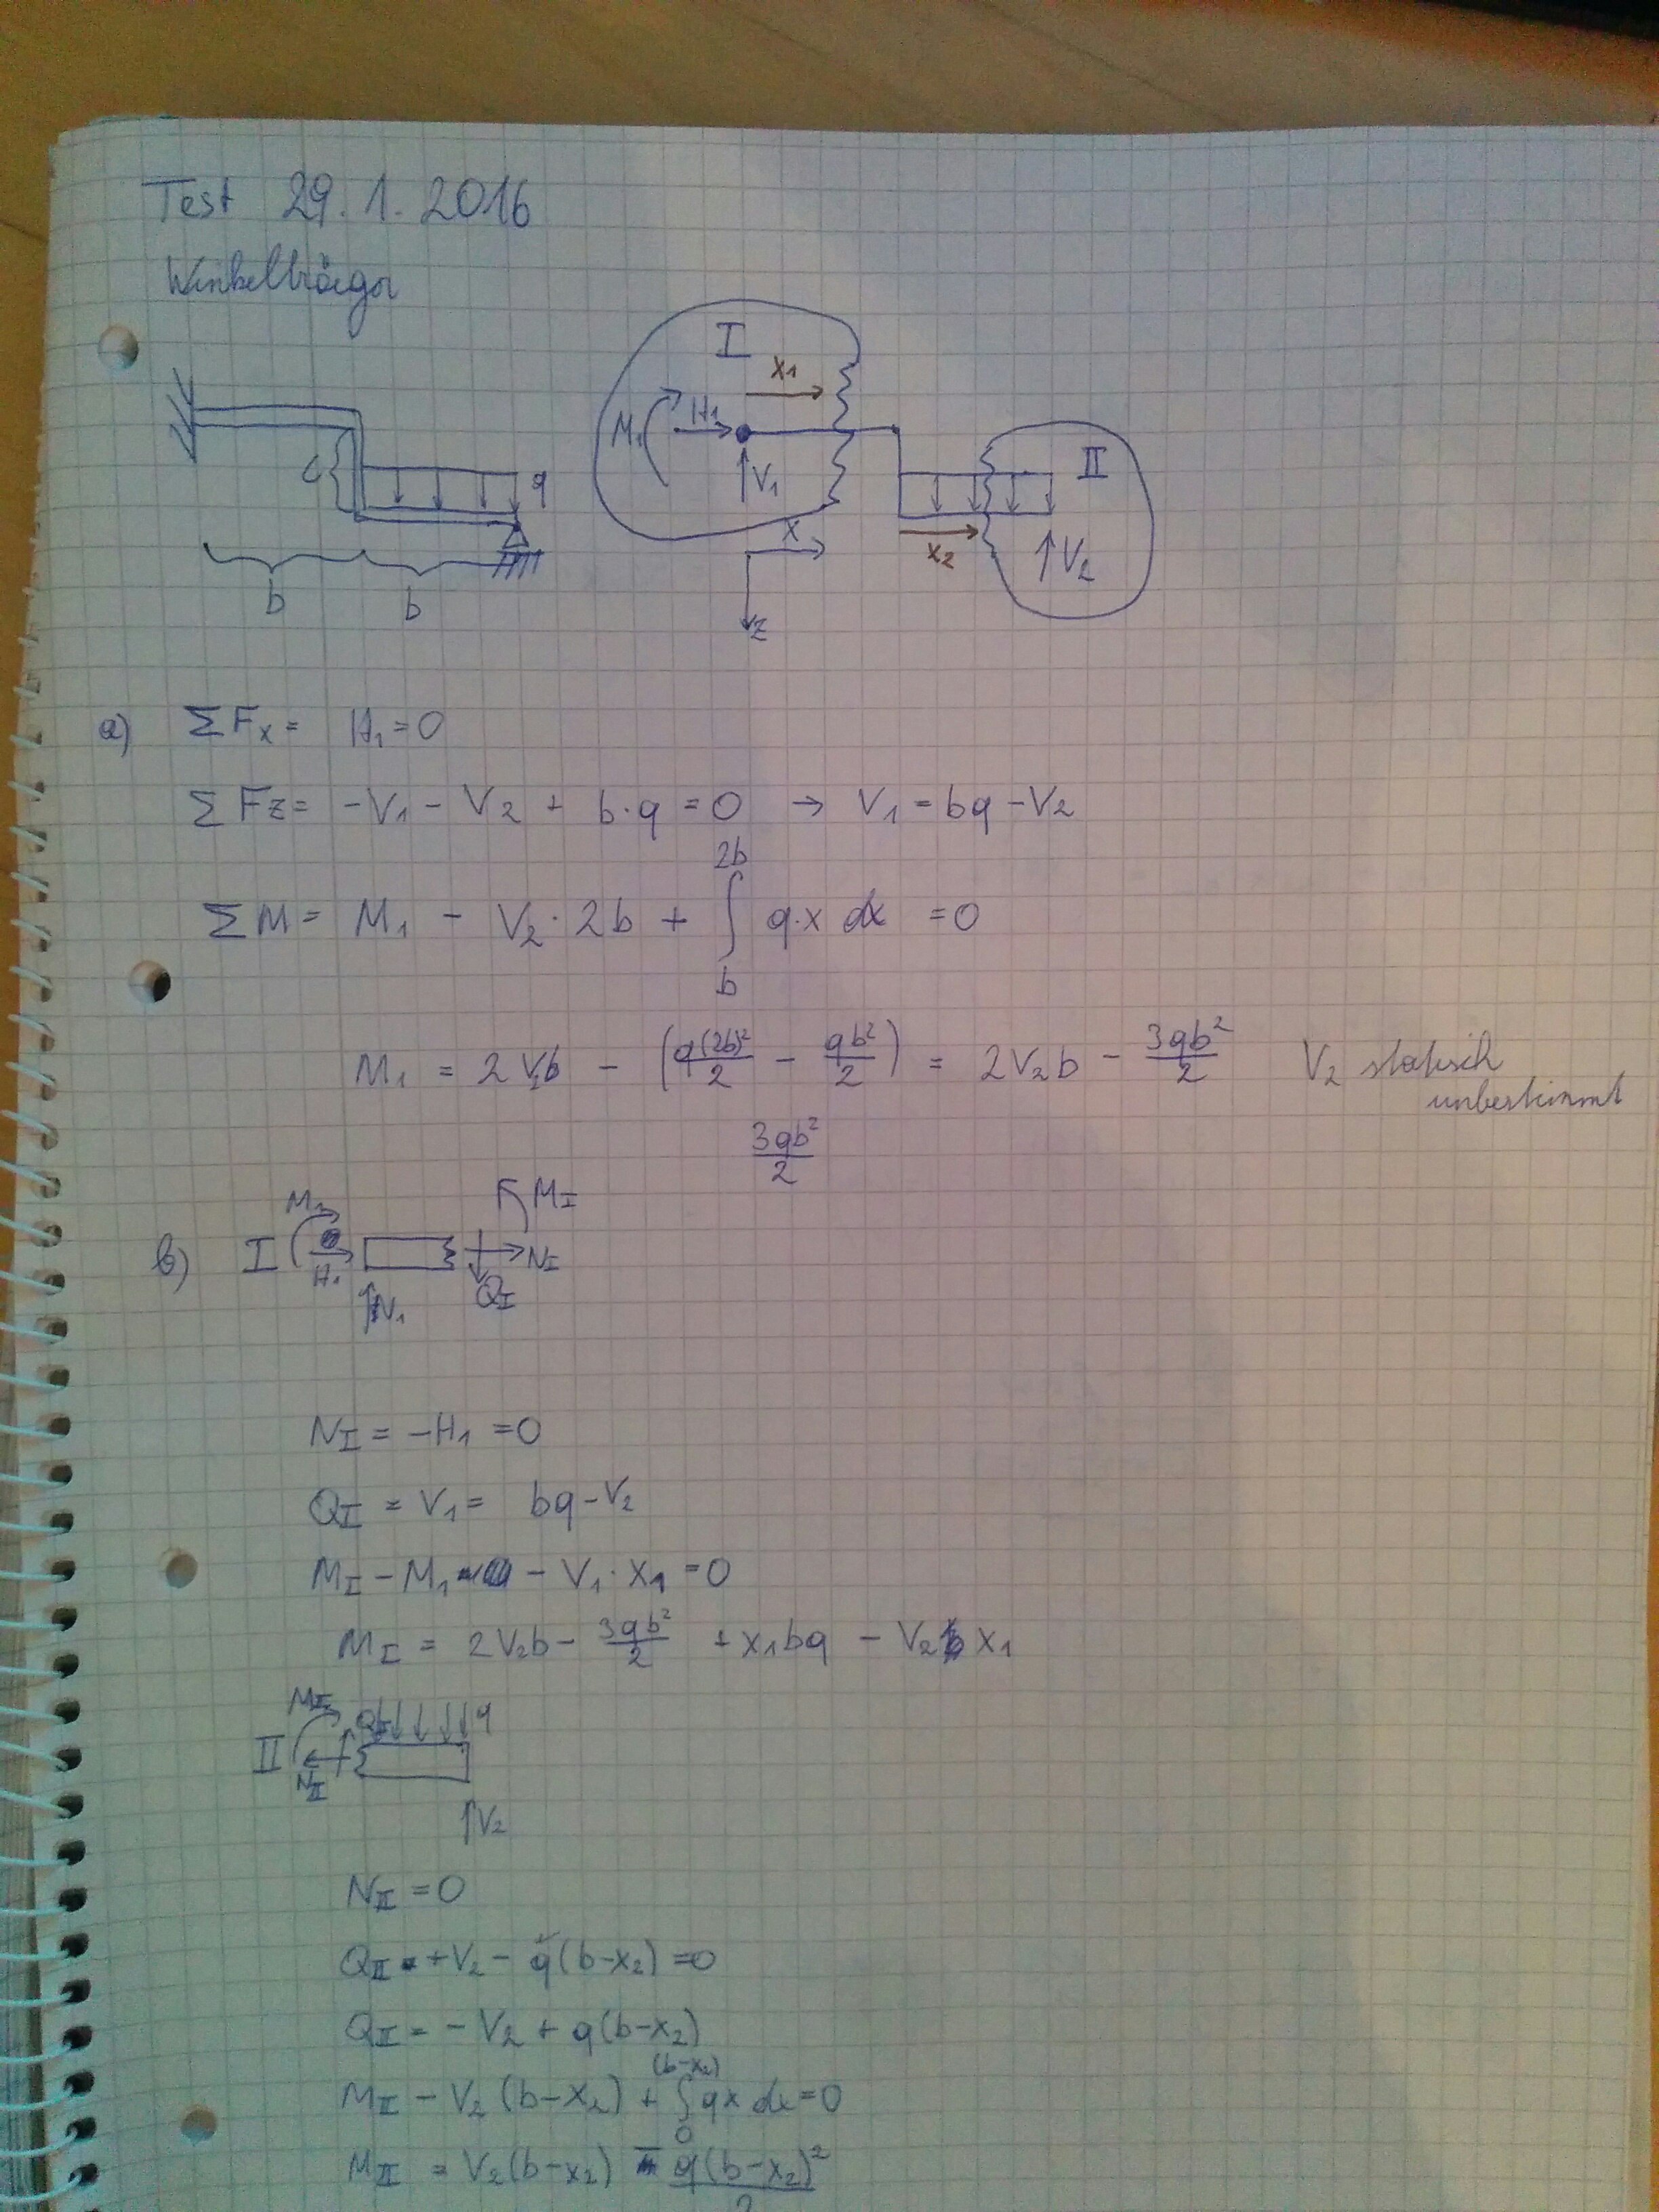 Test 29.1.2016
Winkelträger
I
x₁
M₁ H₁
V₁
II
c
q
x
x₂
V₂
b b
z
a) ΣFx = H₁ = 0
ΣFz = -V₁ - V₂ + b·q = 0 → V₁ = bq - V₂
ΣM = M₁ - V₂·2b + ∫_b^2b q·x dx = 0
M₁ = 2V₂b - (q(2b)²/2 - qb²/2) = 2V₂b - 3qb²/2 V₂ statisch
unbestimmt
3qb²/2
M₁ M_I
b) I H₁ N_I
V₁ Q_I
N_I = -H₁ = 0
Q_I = V₁ = bq - V₂
M_I - M₁ - V₁·x₁ = 0
M_I = 2V₂b - 3qb²/2 + x₁bq - V₂x₁
M_II Q_II q
II N_II
V₂
N_II = 0
Q_II + V₂ - q(b-x₂) = 0
Q_II = -V₂ + q(b-x₂)
M_II - V₂(b-x₂) + ∫_0^(b-x₂) qx dx = 0
M_II = V₂(b-x₂) - q(b-x₂)²/2